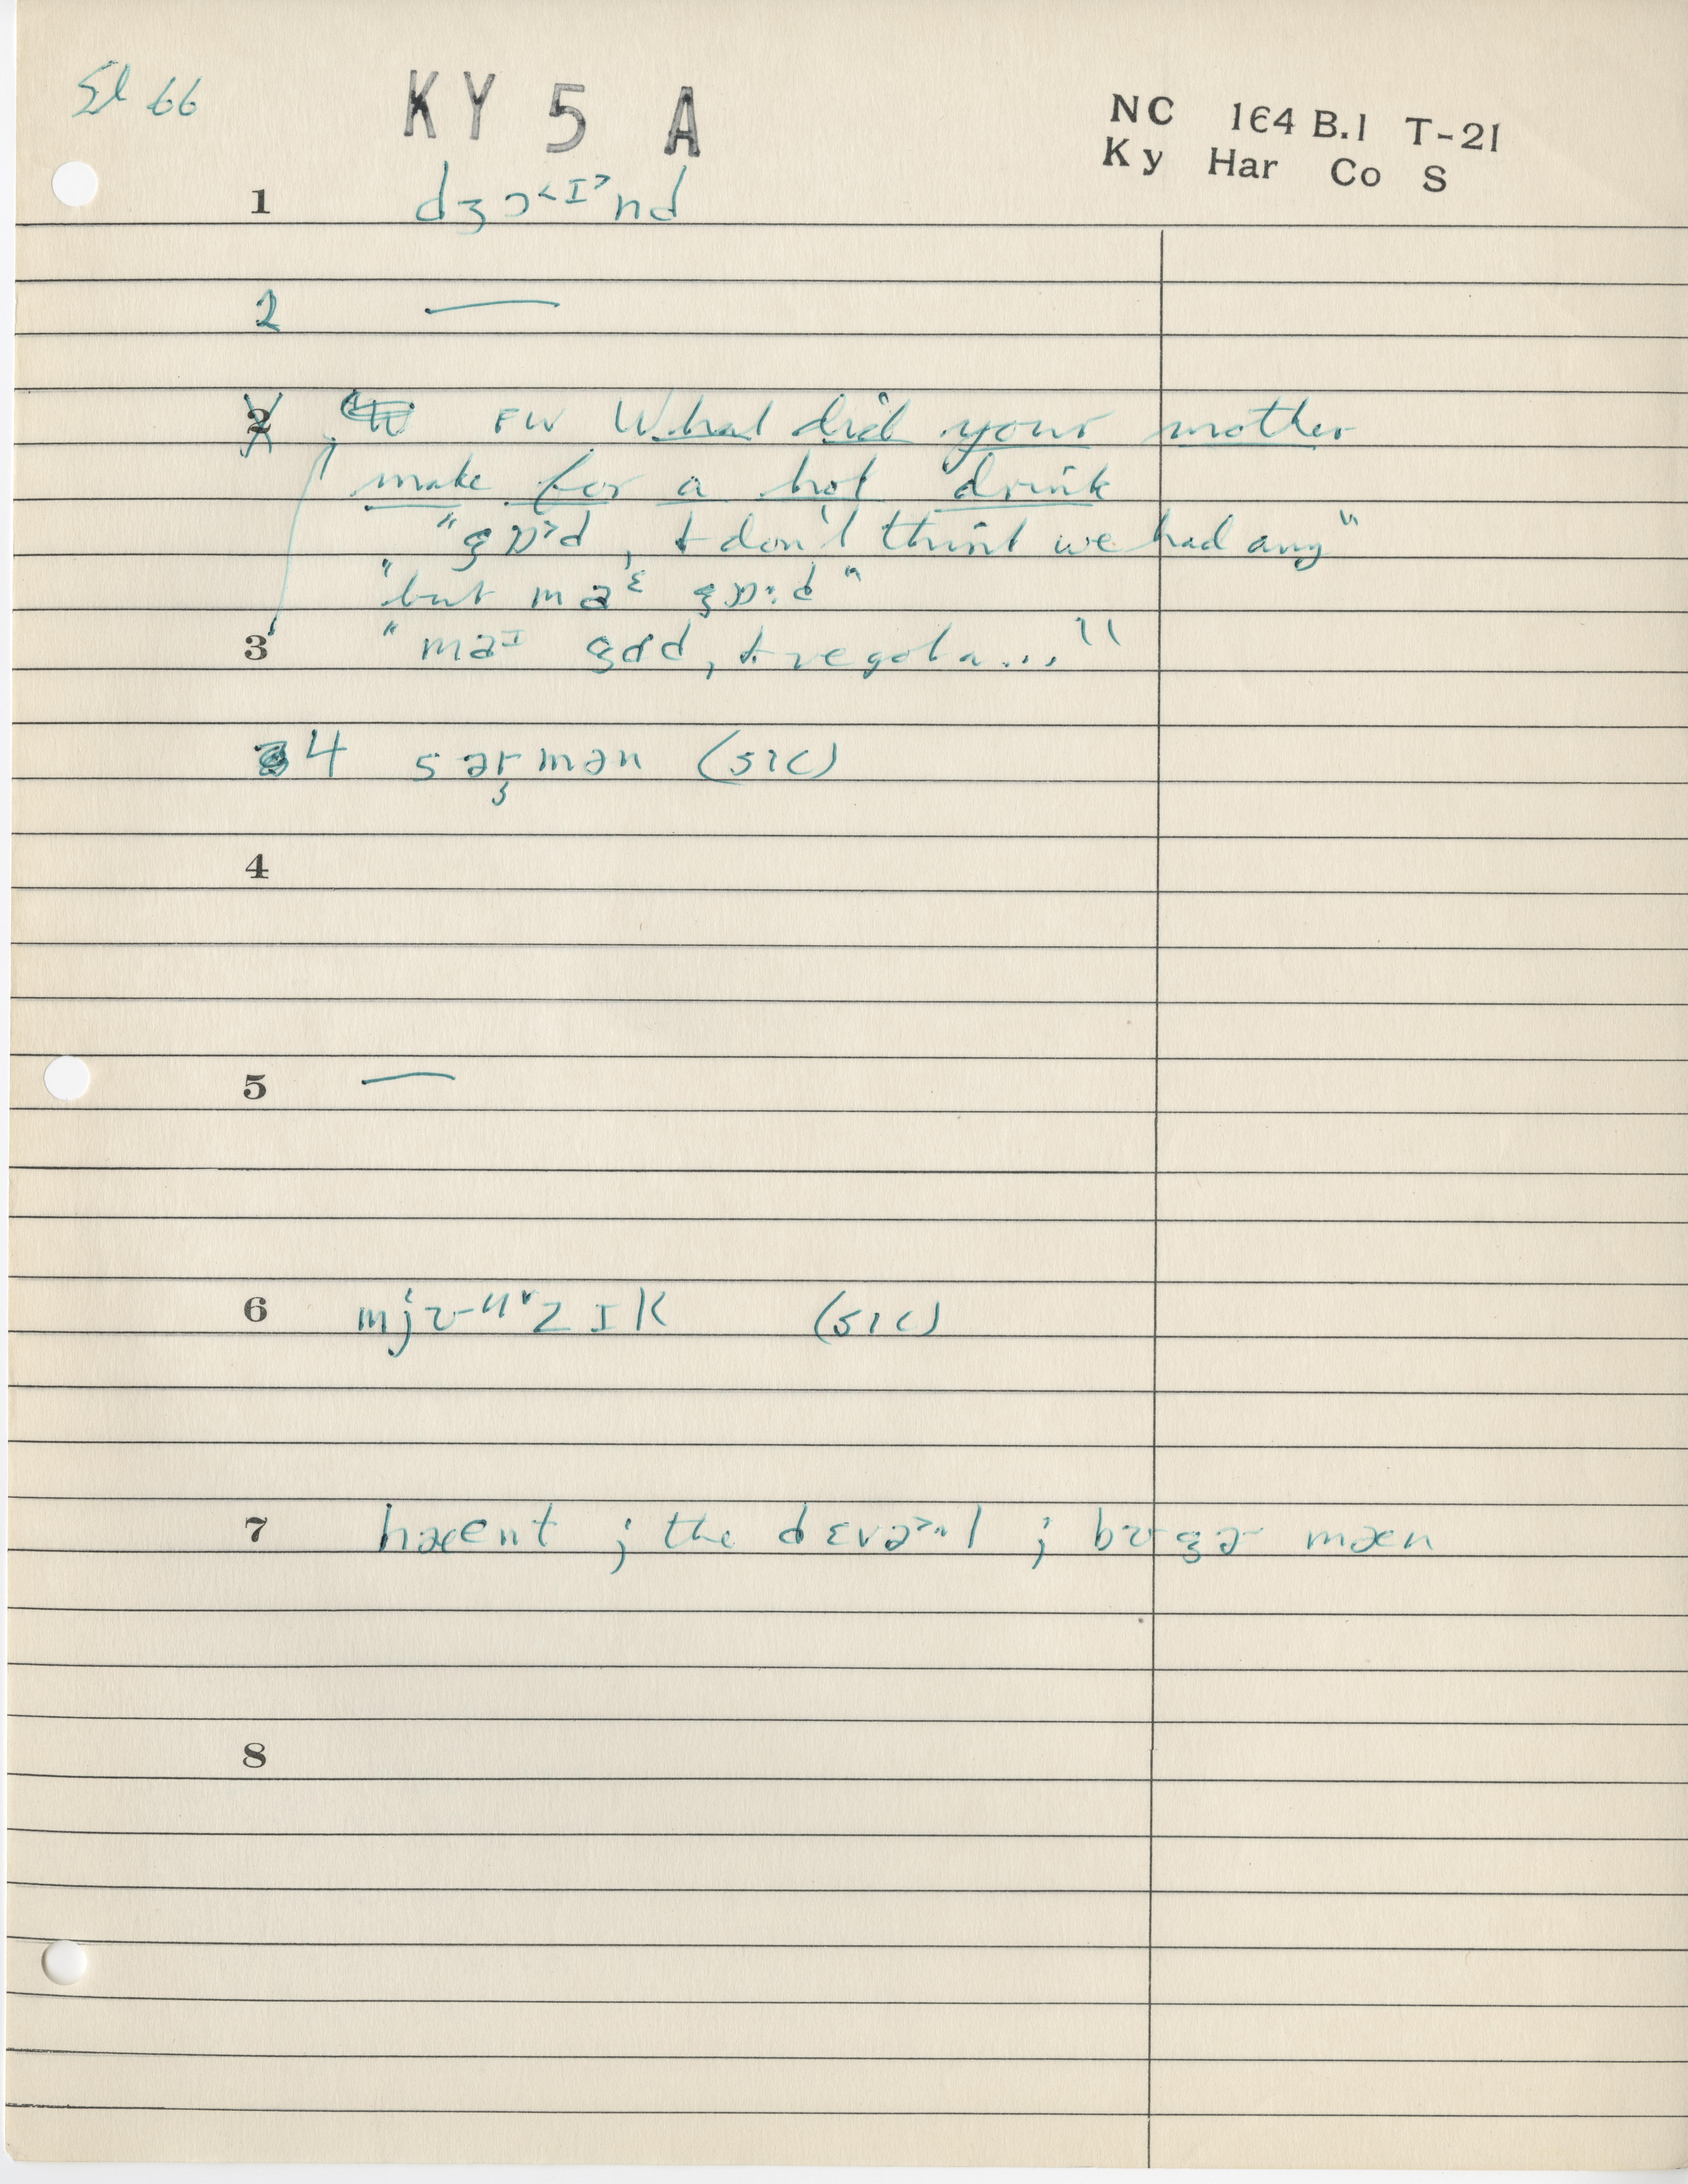 KY 5 A
NC 164 B.1 T-21
Ky Har Co S
66
1 dʒɔ˂ɪ˃nd
2 —
2 FW What did your mother
make for a hot drink
"gɒ˃d, I don't think we had any"
"but maᵋ gɒːd"
3 "maɪ gɑd, I've got a..."
4 sɚmən (sic)
4
5 —
6 mjʊ-ʉ˅zɪk (sic)
7 hæɛnt ; the dɛvə˃l ; bʊgɚ mæn
8